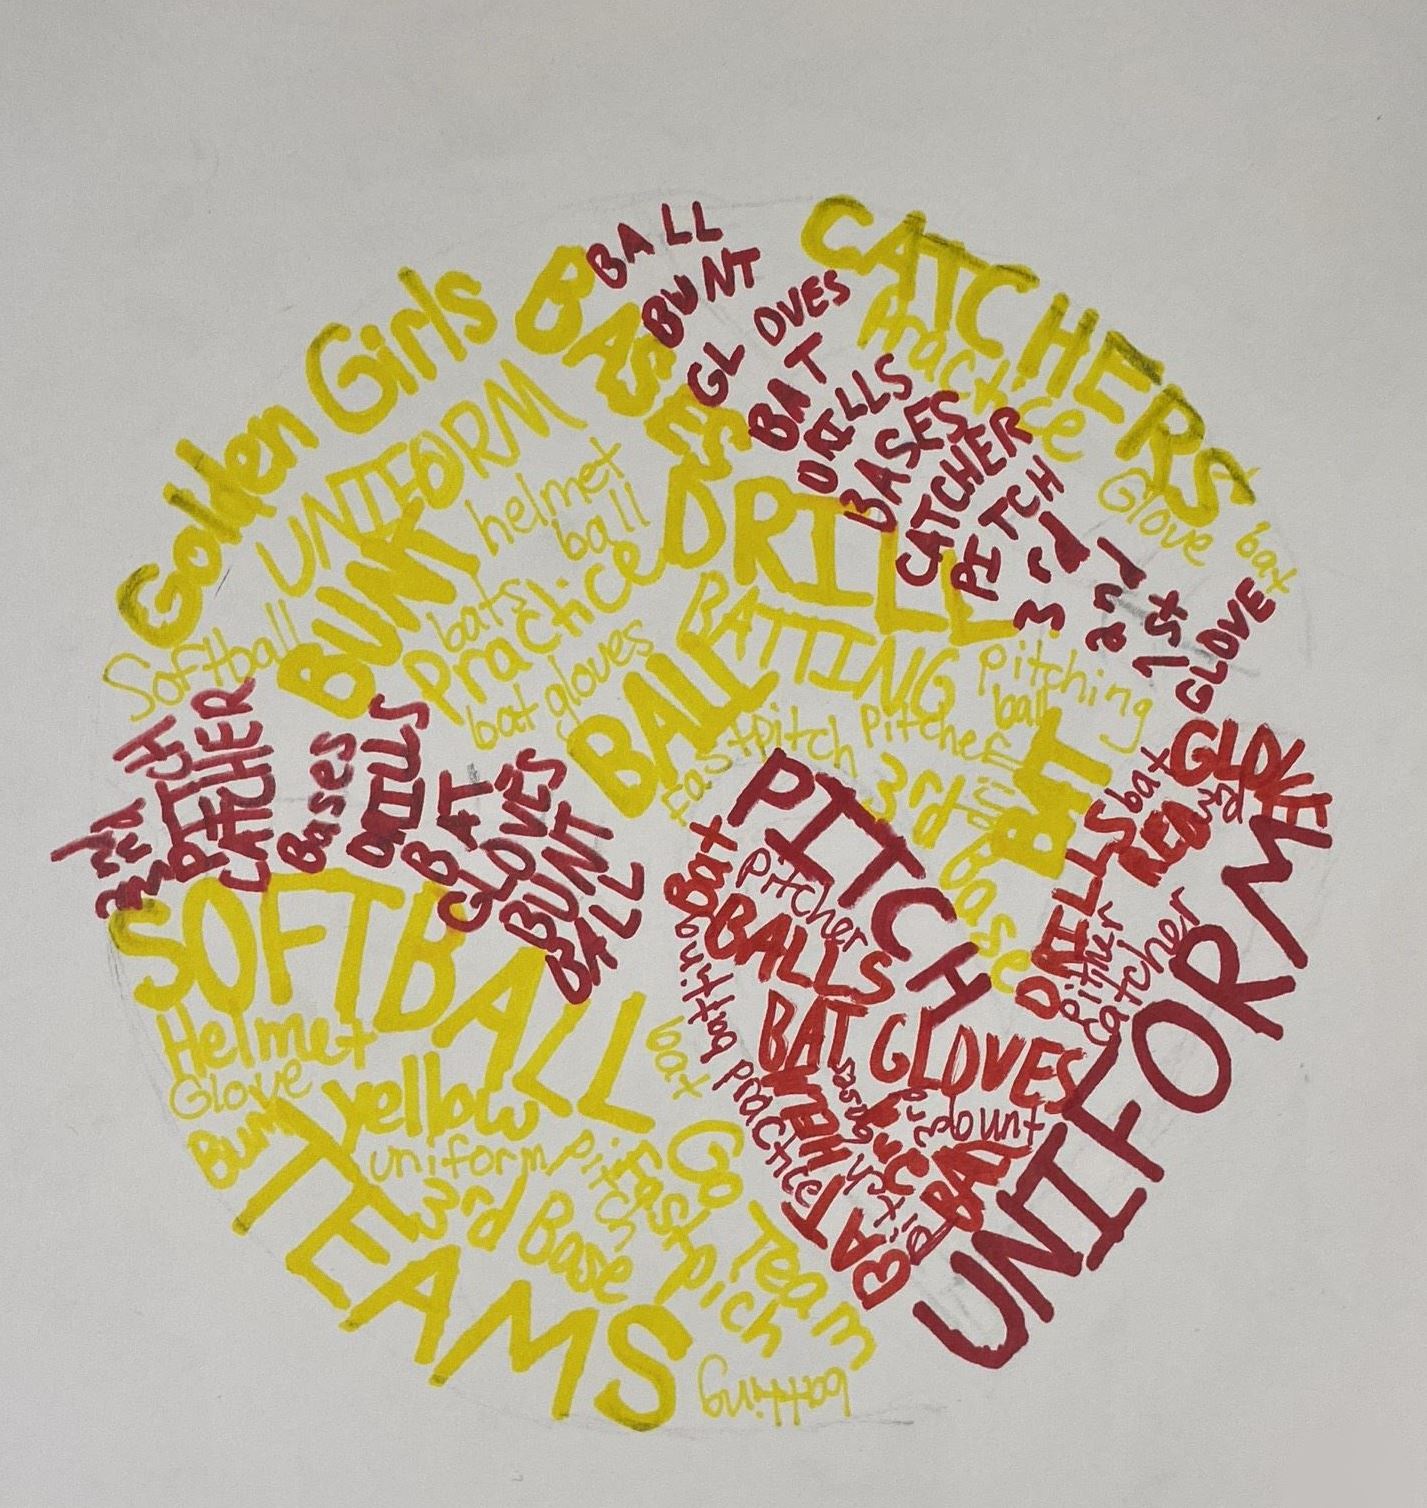 BALL
BUNT
GLOVES
BAT
DRILLS
BASES
CATCHER
PITCH
3rd
2nd
1st
GLOVE
CATCHERS
Practice
Glove
bat
Golden Girls
BASES
UNIFORM
helmet
ball
BUNT
bats
practice
bat gloves
Softball
DRILL
BATTING
BALL
Pitching
ball
Fastpitch Pitcher
3rd Base
BAT
2nd
PITCH
CATCHER
Bases
DRILLS
BAT
GLOVES
BUNT
BALL
SOFTBALL
Helmet
Glove
yellow
bat
TEAMS
uniform
Pitch
3rd Base
Go Team
Fast pich
batting
PITCH
Bat
Pitcher
BALLS
batting practice
BAT GLOVES
bunt
BALL
BAT
GLOVE
bat
RED
3rd
DRILLS
catcher
UNIFORM